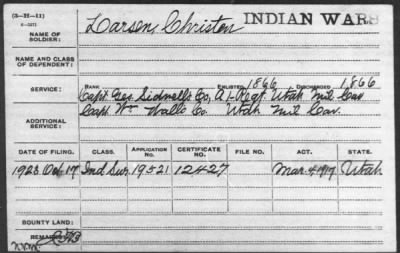 (3-21-11)
6-3271
Larsen, Christen
INDIAN WARS
NAME OF SOLDIER:
NAME AND CLASS OF DEPENDENT:
SERVICE:
RANK
ENLISTED 1866 DISCHARGED 1866
Capt. Geo. Sidwell's Co, A 1-Regt. Utah Mil Cav
Capt. Wm Wall's Co. Utah Mil Cav.
ADDITIONAL SERVICE:
DATE OF FILING. CLASS. APPLICATION NO. CERTIFICATE NO. FILE NO. ACT. STATE.
1923 Oct 17 Ind Sur. 19521 12427 Mar. 4 1917 Utah
BOUNTY LAND:
REMARKS: